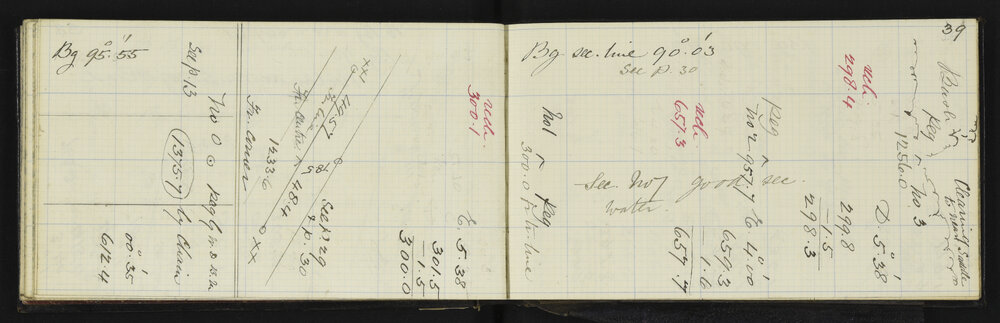 39
Bg 95°.55'
Sec p 13
No. 0 ⊙ peg
1375.7 by Chain
00°.35'
612.4
Fr. corner
1433.6
Fr. Centre
1495.7
XX1
48.4
785
XX
See p. 29
& p. 30
red.
300.1
E. 5.38
301.5
1.5
300.0
Bg sec. line 90°.03'
See p. 30
No 1
Peg
300.0 fr tr. line
red.
657.3
Peg
No 2 957.7 E 4°.00'
659.3
1.6
657.7
See No 7 good sec.
water.
red.
298.4
Bush
Peg
No. 3
1256.0
D 5°.38'
299.8
1.5
298.3
Clearing